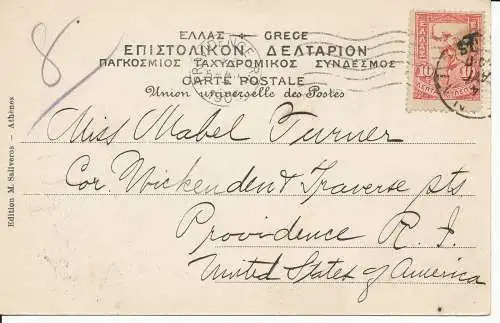 8
ΕΛΛΑΣ GRECE
ΕΠΙΣΤΟΛΙΚΟΝ ΔΕΛΤΑΡΙΟΝ
ΠΑΓΚΟΣΜΙΟΣ ΤΑΧΥΔΡΟΜΙΚΟΣ ΣΥΝΔΕΣΜΟΣ
CARTE POSTALE
Union universelle des Postes
PROVIDENCE
ΕΛΛΑΣ
10 10
Miss Mabel Turner
Cor. Wickenden & Traverse sts
Providence R. I.
United States of America
Edition M. Saliveros – Athènes